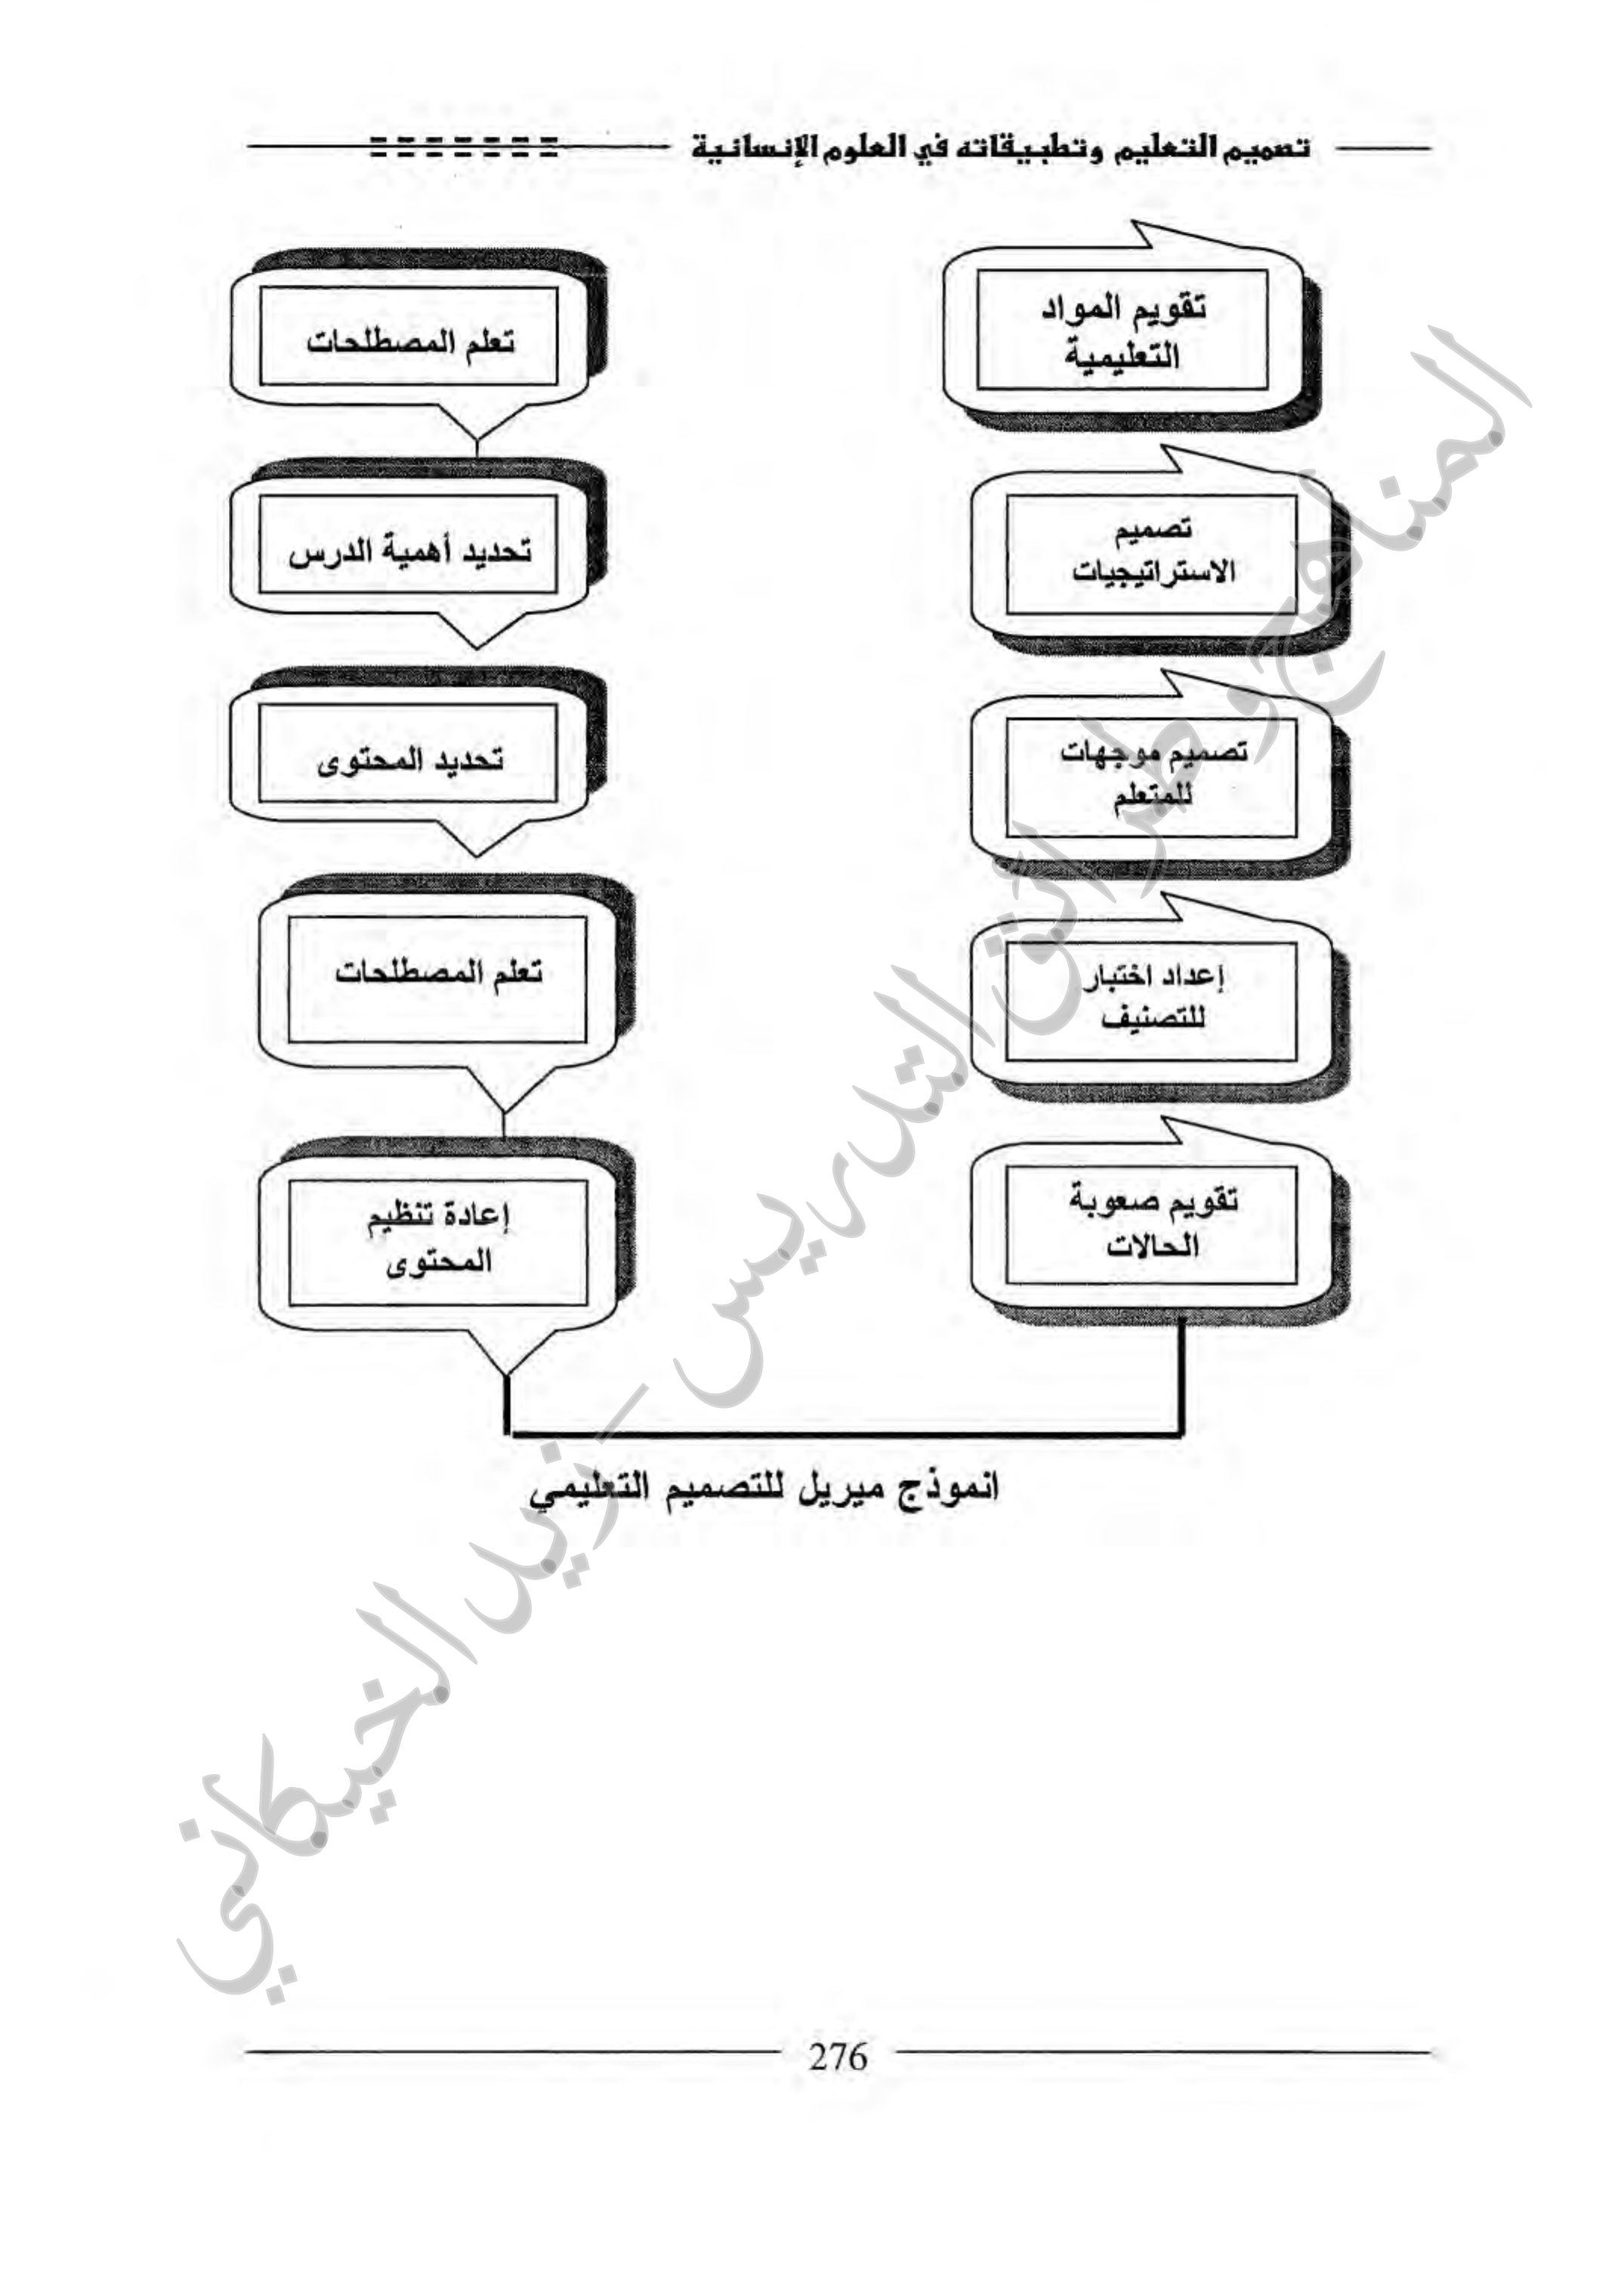 تصميم التعليم وتطبيقاته في العلوم الإنسانية
تقويم المواد
التعليمية
تصميم
الاستراتيجيات
تصميم موجهات
للمتعلم
إعداد اختبار
للتصنيف
تقويم صعوبة
الحالات
تعلم المصطلحات
تحديد أهمية الدرس
تحديد المحتوى
تعلم المصطلحات
إعادة تنظيم
المحتوى
انموذج ميريل للتصميم التعليمي
المناهج وطرائق التدريس - زيد الخيكاني
276